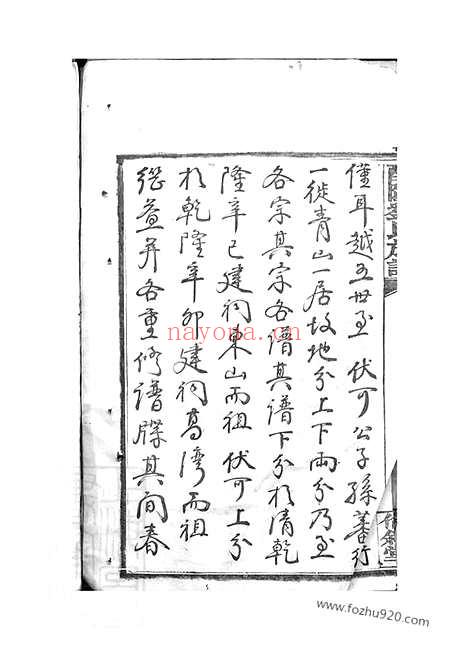 僅耳越五世至 伏可公子孫蕃衍
一徙青山一居故地分上下兩分乃至
各宗其宗各譜其譜下分於清乾
隆辛巳建祠東山而祖 伏可上分
於乾隆辛卯建祠葛灣而祖
從益并各重修譜牒其间春
nayona.cn
www.fozhu920.com